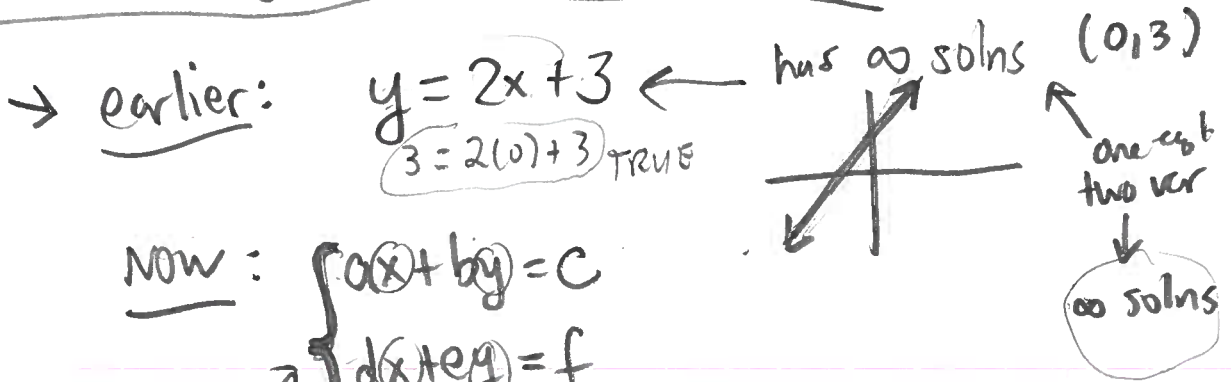 → earlier: y = 2x + 3 ← has ∞ solns (0,3)
3 = 2(0) + 3 TRUE
one eqt
two var
↓
∞ solns
NOW: { ax + by = c
dx + ey = f